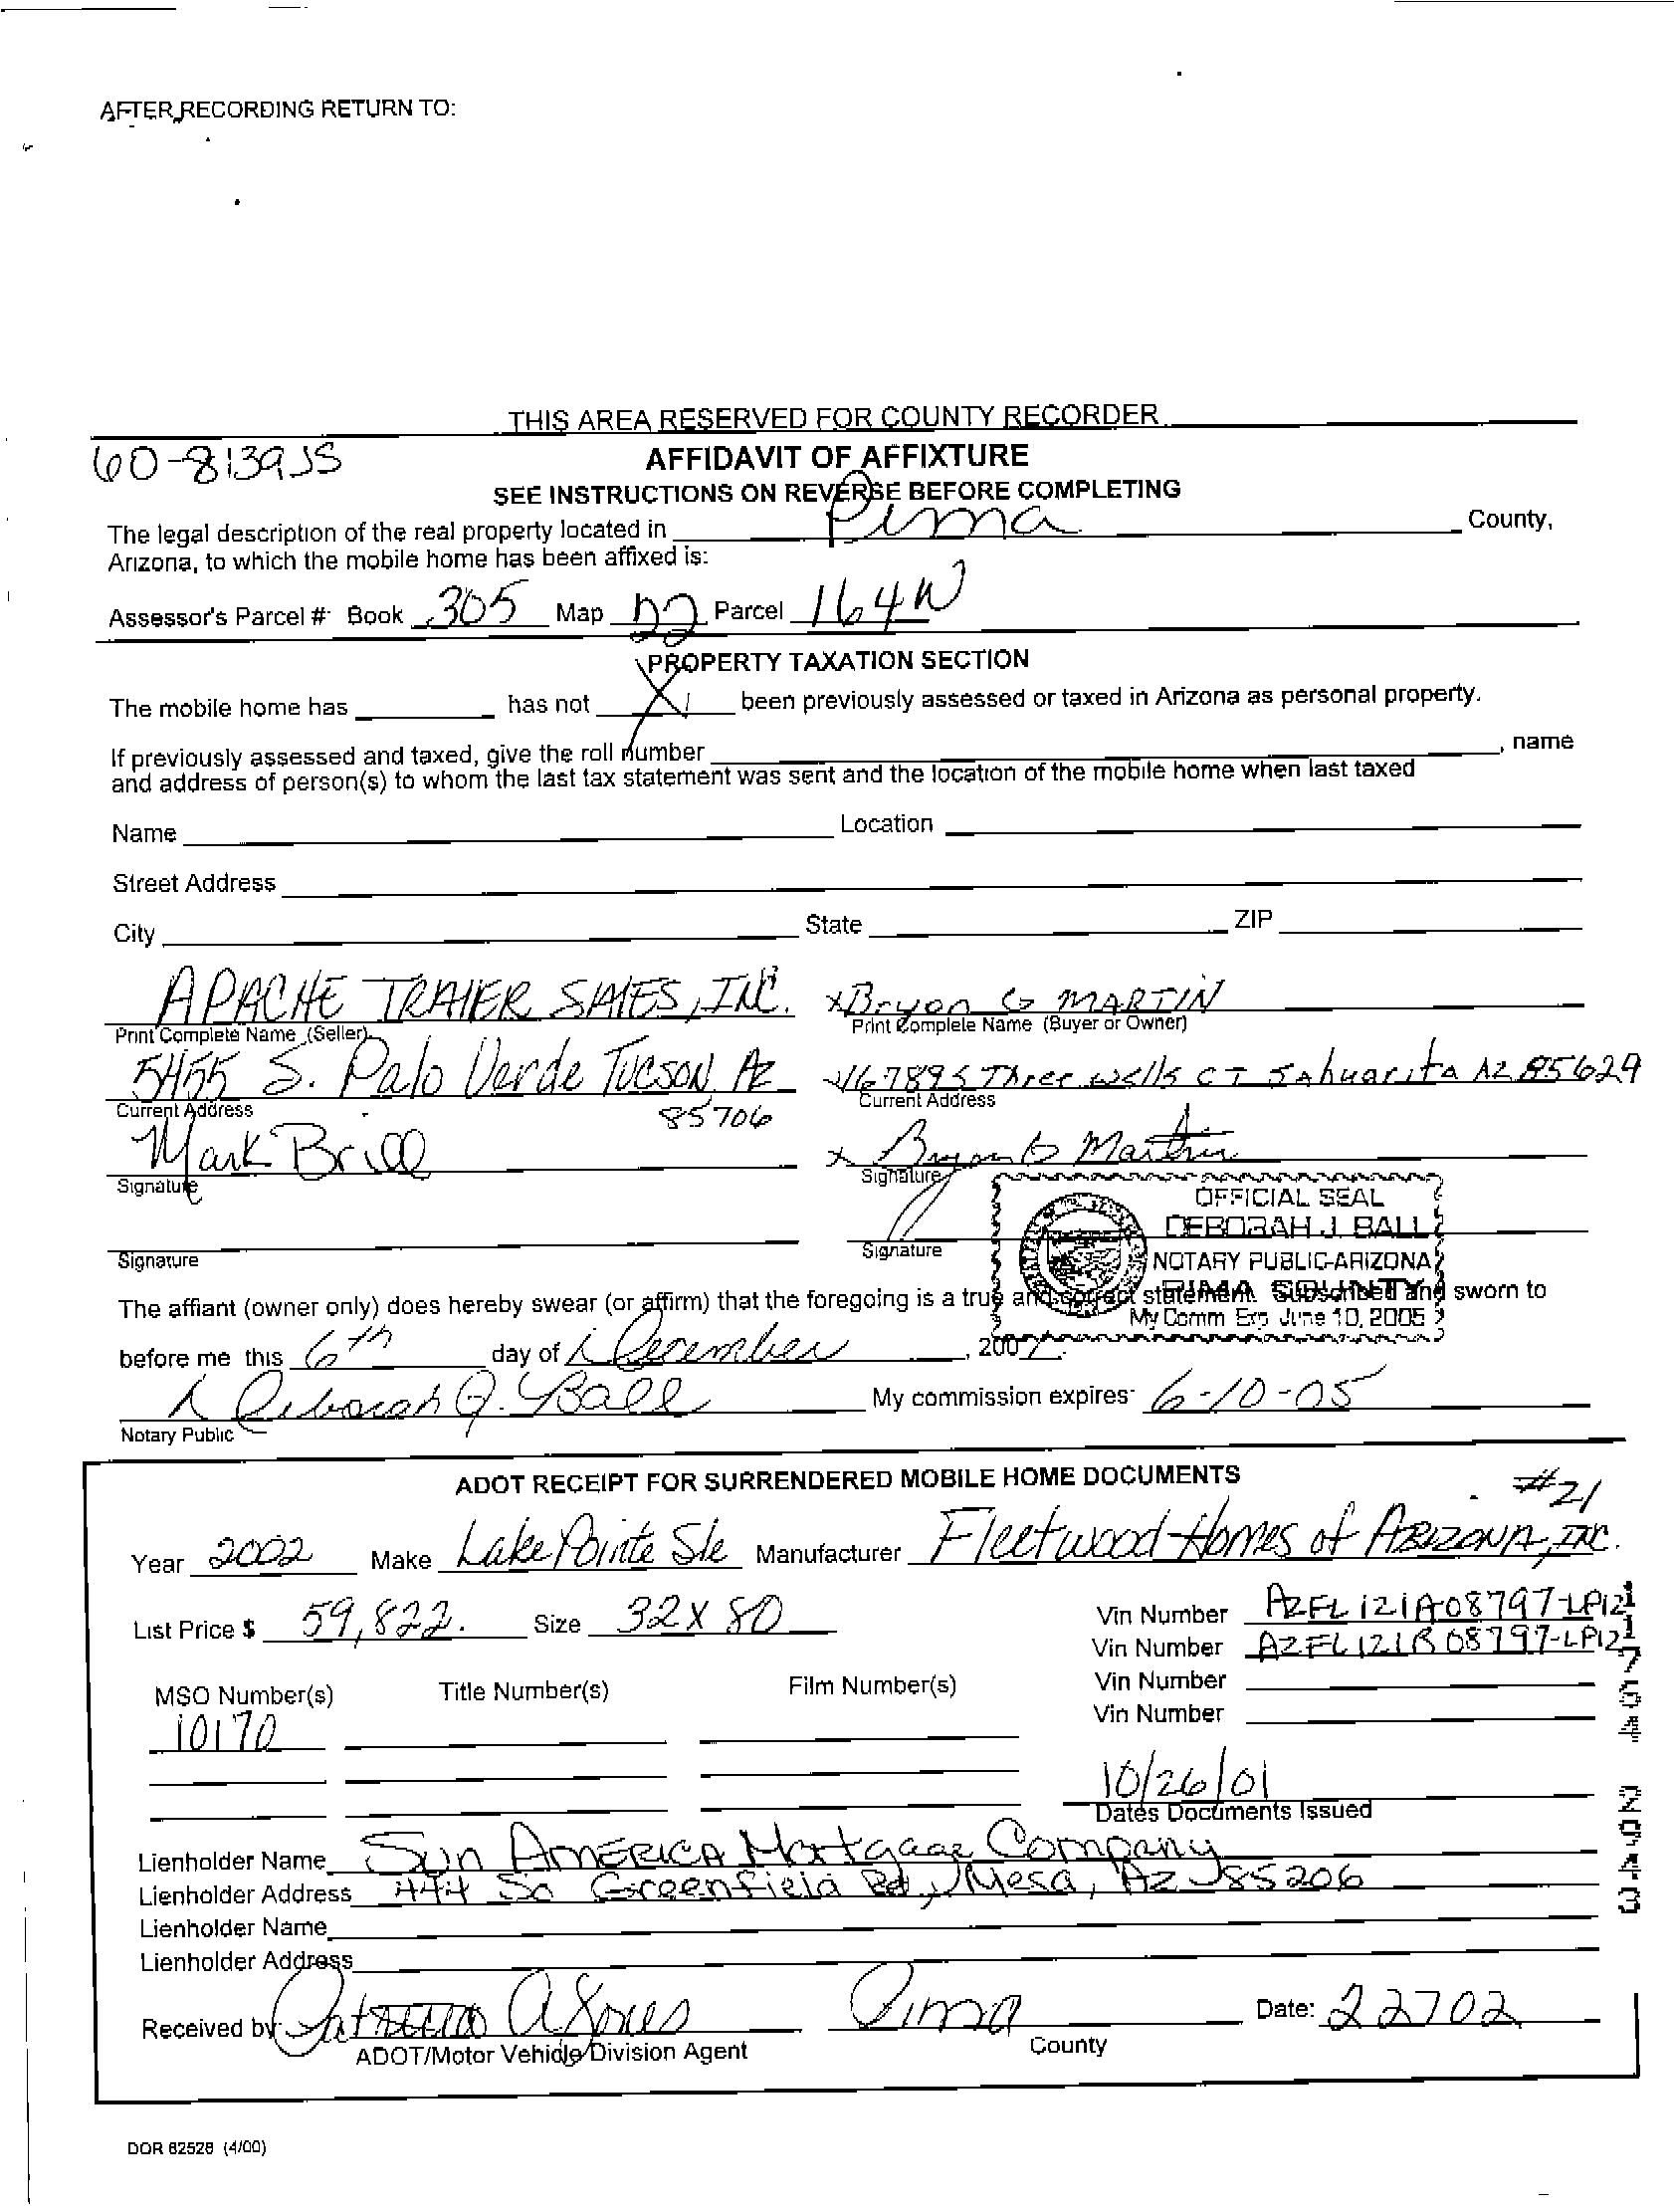 AFTER RECORDING RETURN TO:
THIS AREA RESERVED FOR COUNTY RECORDER
60-8139JS
AFFIDAVIT OF AFFIXTURE
SEE INSTRUCTIONS ON REVERSE BEFORE COMPLETING
The legal description of the real property located in Pima County,
Arizona, to which the mobile home has been affixed is:
Assessor's Parcel # Book 305 Map 22 Parcel 164W
PROPERTY TAXATION SECTION
The mobile home has has not X been previously assessed or taxed in Arizona as personal property.
If previously assessed and taxed, give the roll number , name
and address of person(s) to whom the last tax statement was sent and the location of the mobile home when last taxed
Name Location
Street Address
City State ZIP
APACHE TRAIER SAlES, INC. x Bryon G MARTIN
Print Complete Name (Seller) Print Complete Name (Buyer or Owner)
5455 S. Palo Verde Tucson, Az 85706 16789 S Three wells CT Sahuarita AZ 85629
Current Address Current Address
Mark Brill x Bryon G Martin
Signature Signature
Signature Signature
OFFICIAL SEAL
DEBORAH J. BALL
NOTARY PUBLIC-ARIZONA
PIMA COUNTY
My Comm Exp June 10, 2005
The affiant (owner only) does hereby swear (or affirm) that the foregoing is a true and correct statement. Subscribed and sworn to
before me this 6th day of December, 2001.
Deborah J. Ball My commission expires: 6-10-05
Notary Public
ADOT RECEIPT FOR SURRENDERED MOBILE HOME DOCUMENTS
#21
Year 2002 Make Lake Pointe Ste Manufacturer Fleetwood Homes of ARIZONA, INC.
List Price $ 59,822. Size 32 X 80 Vin Number AZFL121A08797-LP121
Vin Number AZFL121B08797-LP121
MSO Number(s) Title Number(s) Film Number(s) Vin Number
10170 Vin Number
10/26/01
Dates Documents Issued
Lienholder Name Sun AmERICA Mortgage Company
Lienholder Address 444 So Greenfield Rd, Mesa, AZ 85206
Lienholder Name
Lienholder Address
Received by Pima Date: 22702
ADOT/Motor Vehicle Division Agent County
DOR 82528 (4/00)